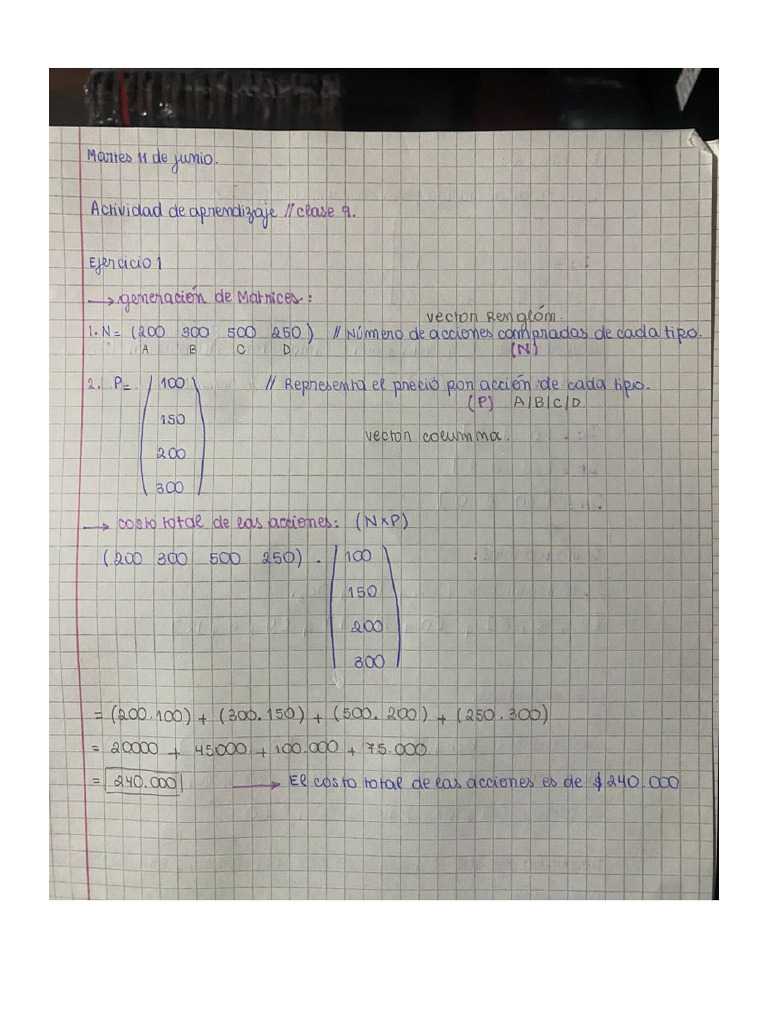 Martes 11 de junio.
Actividad de aprendizaje // clase 9.
Ejercicio 1
→ generación de Matrices:
vector Renglón.
1. N = (200 300 500 250) // Número de acciones compradas de cada tipo.
A B C D (N)
2. P = (100 // Representa el precio por acción de cada tipo.
(P) A/B/C/D
150
vector columna.
200
300)
→ costo total de las acciones: (N×P)
(200 300 500 250) . (100
150
200
300)
= (200.100) + (300.150) + (500.200) + (250.300)
= 20000 + 45000 + 100.000 + 75.000
= 240.000 → El costo total de las acciones es de $240.000